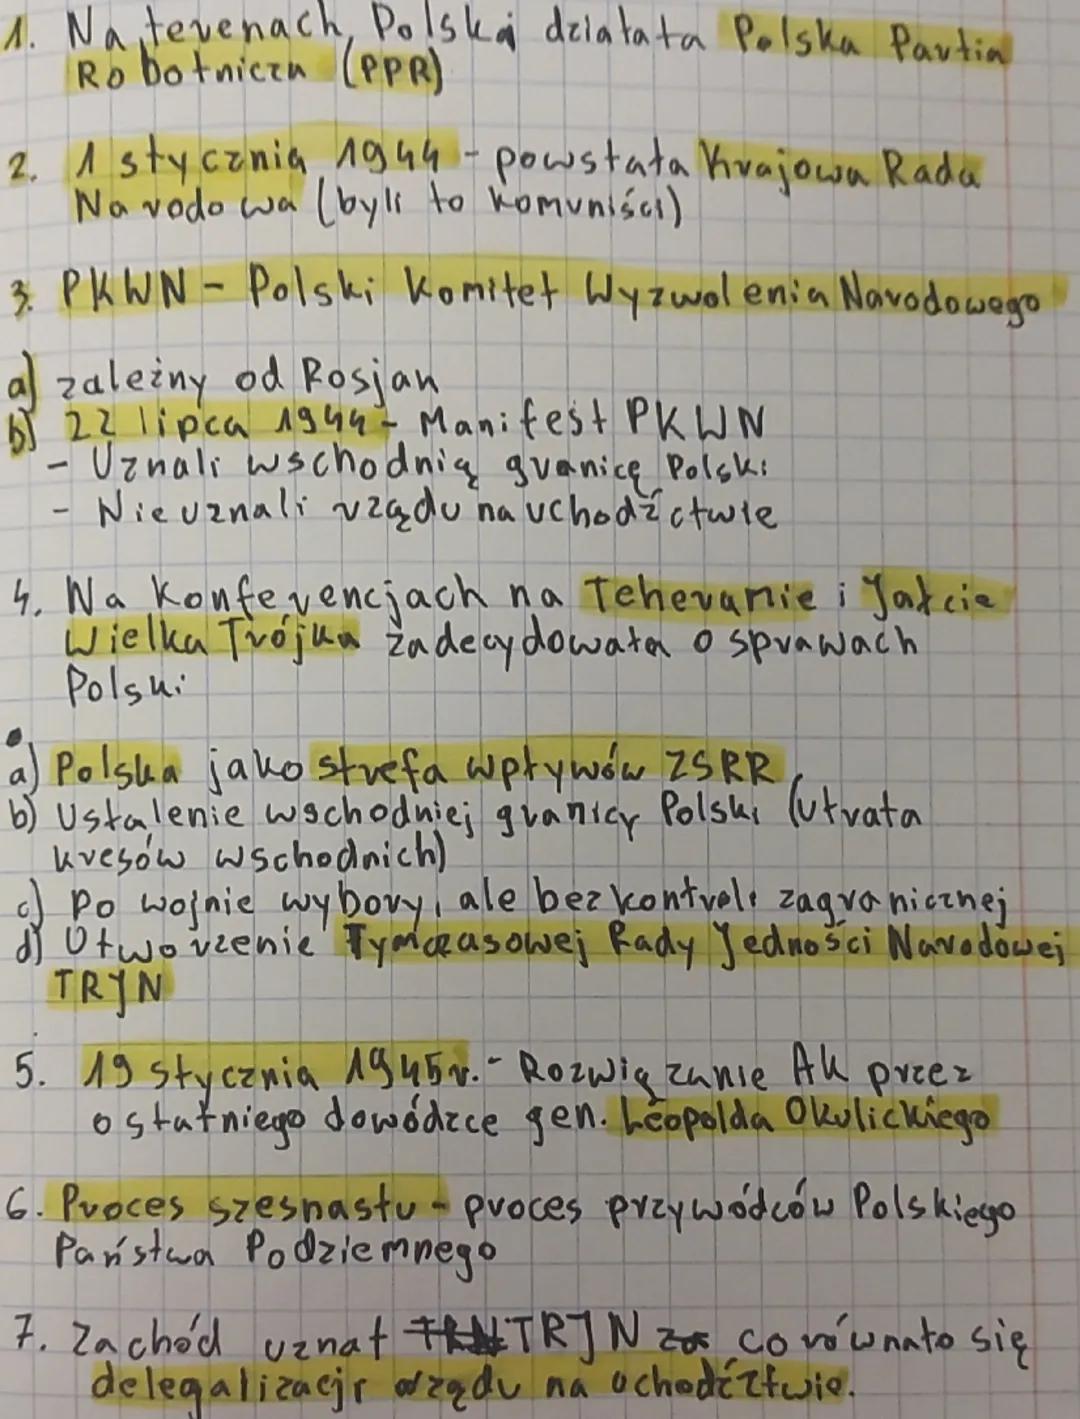 1. Na terenach Polski działała Polska Partia
Robotnicza (PPR)
2. 1 stycznia 1944 - powstała Krajowa Rada
Narodowa (byli to komuniści)
3. PKWN - Polski Komitet Wyzwolenia Narodowego
a) zależny od Rosjan
b) 22 lipca 1944 - Manifest PKWN
- Uznali wschodnią granicę Polski
- Nie uznali rządu na uchodźctwie
4. Na konferencjach na Teheranie i Jałcie
Wielka Trójka zadecydowała o sprawach
Polski
a) Polska jako strefa wpływów ZSRR
b) Ustalenie wschodniej granicy Polski (utrata
kresów wschodnich)
c) Po wojnie wybory, ale bez kontroli zagranicznej
d) Utworzenie Tymczasowej Rady Jedności Narodowej
TRJN
5. 19 stycznia 1945r. - Rozwiązanie AK przez
ostatniego dowódzce gen. Leopolda Okulickiego
6. Proces szesnastu - proces przywódców Polskiego
Państwa Podziemnego
7. Zachód uznał TRJN co równało się
delegalizacji rządu na uchodźztwie.